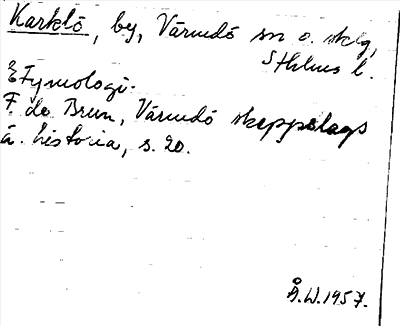 Karklö, by, Värmdö sn o. sklg,
Sthlms l.
Etymologi.
F. de Brun, Värmdö skeppslags
ä. historia, s. 20.
Å.W.1957.